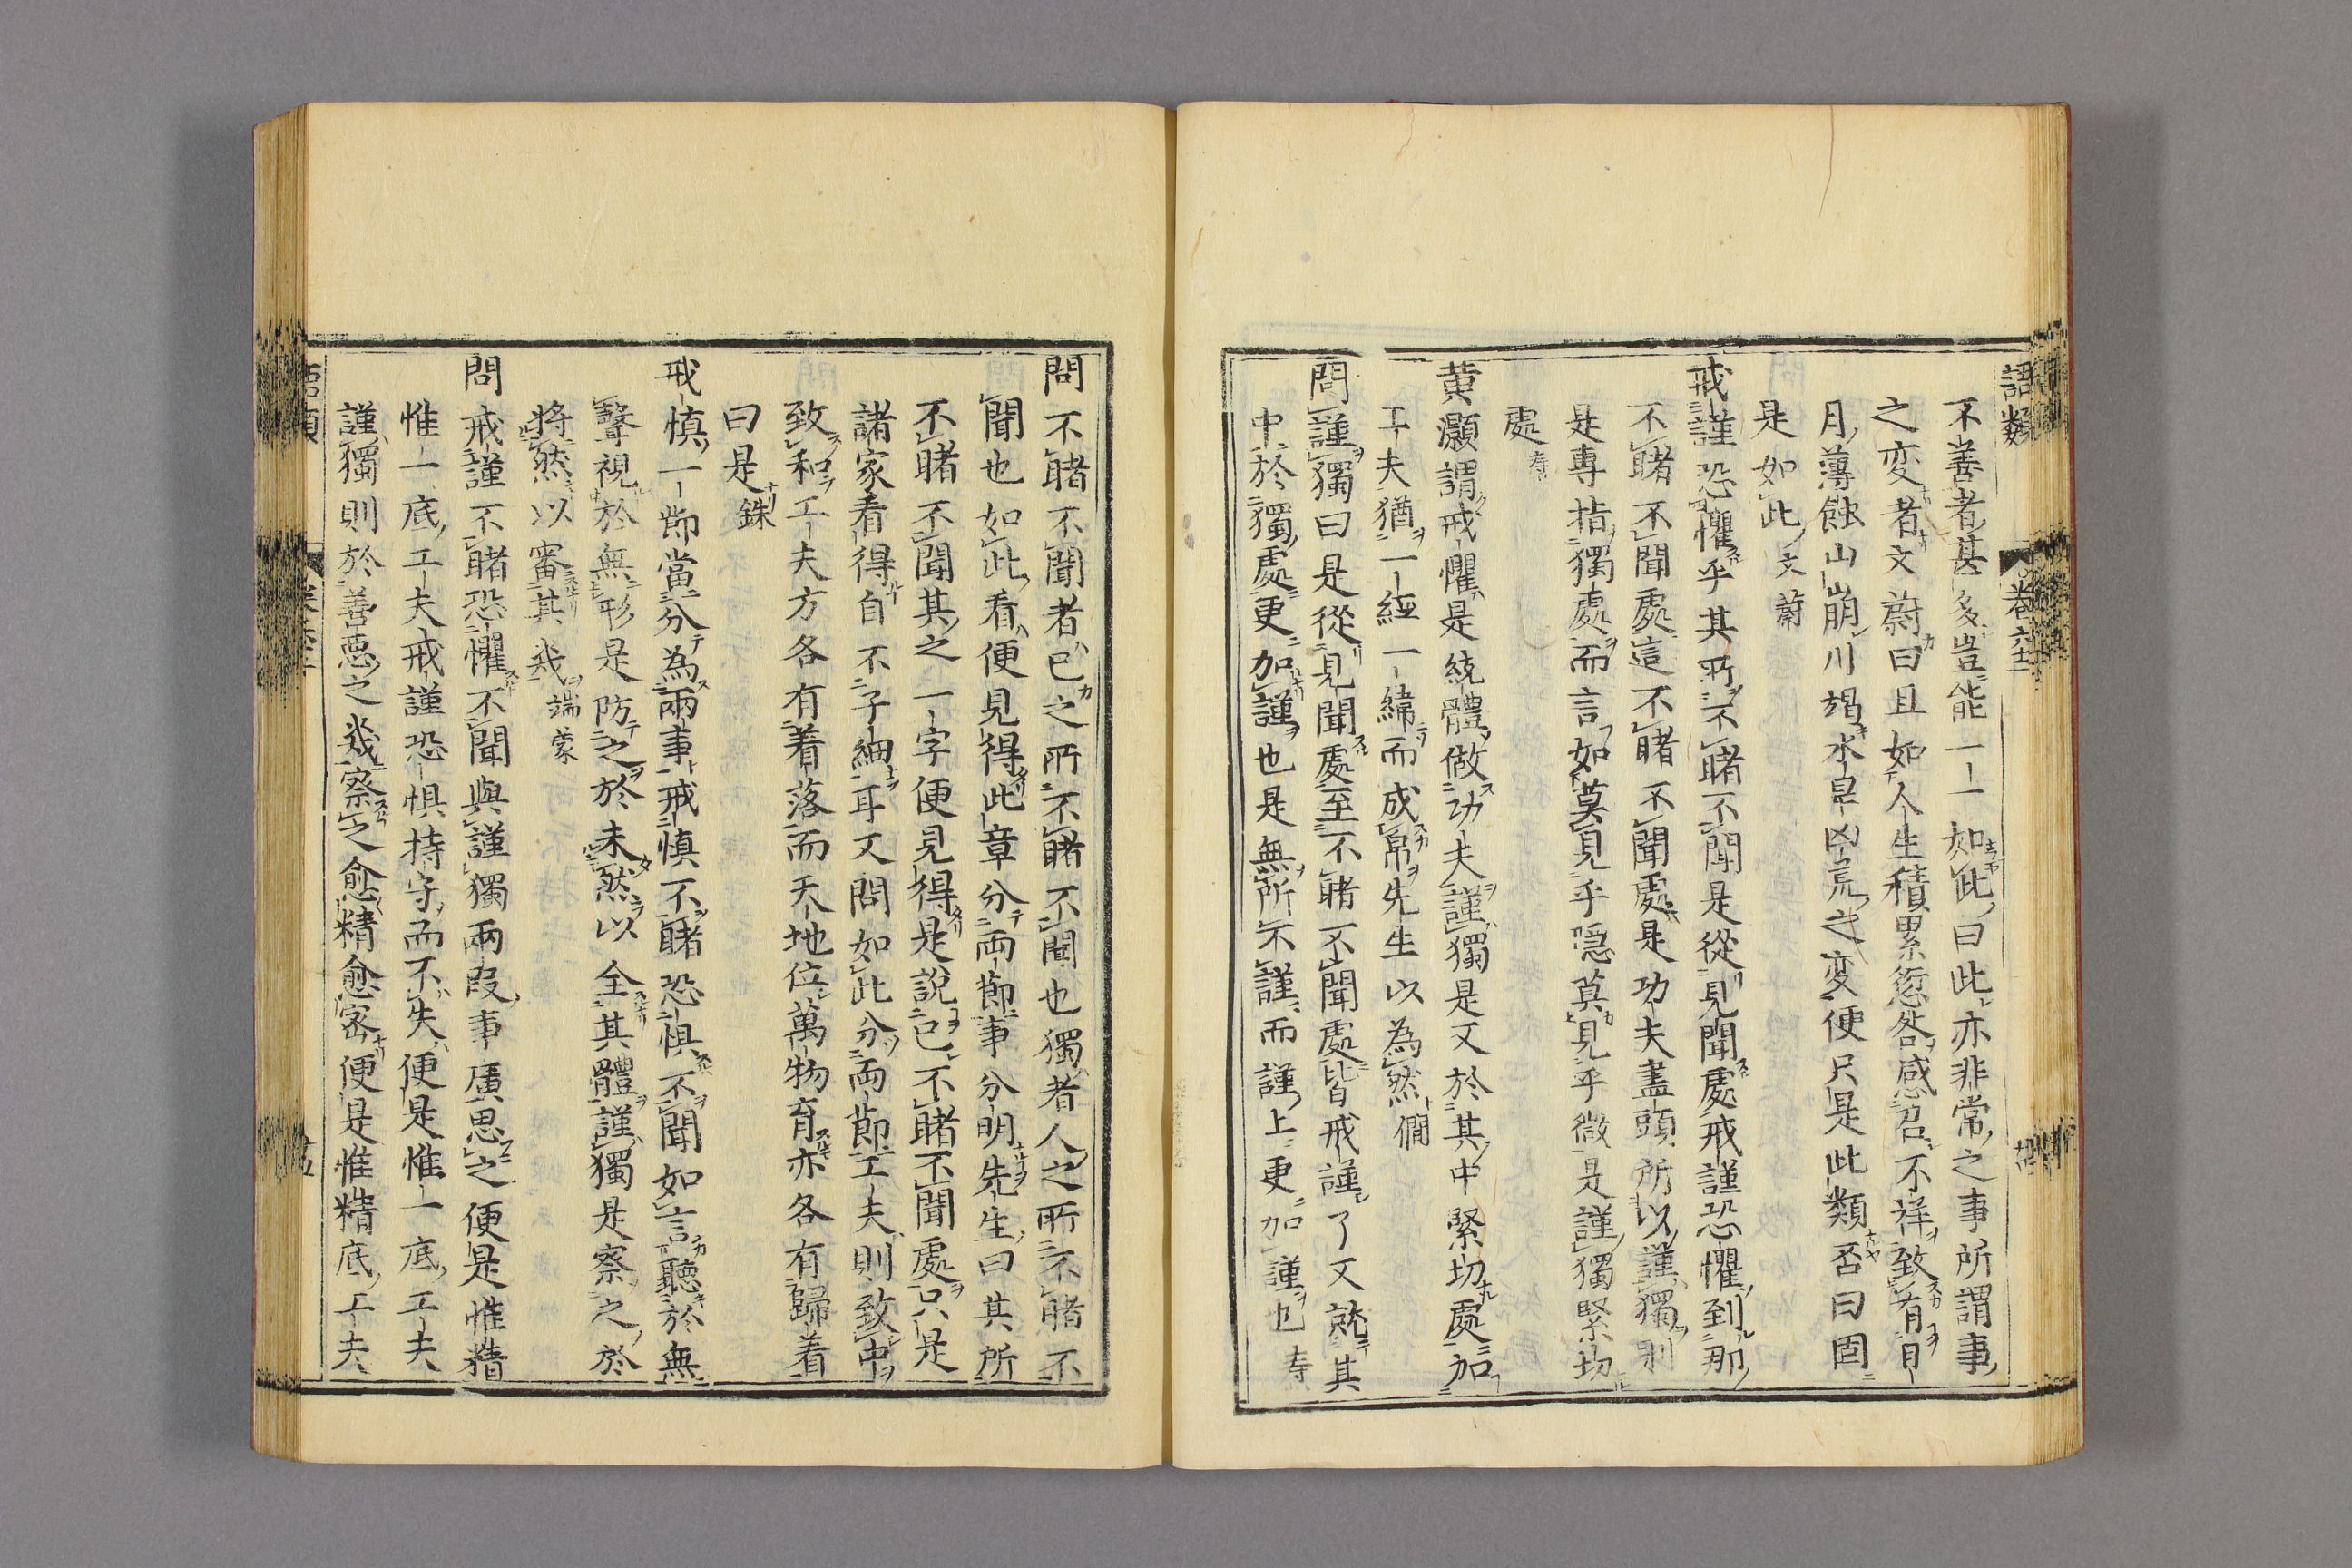 語類 卷六十二
不善者甚多豈能一一如此曰此亦非常之事所謂事
之変者文蔚曰且如人生積累愆咎感召不祥致有日
月薄蝕山崩川竭水旱凶荒之変便只是此類否曰固
是如此文蔚
戒謹恐懼乎其所不睹不聞是從見聞處戒謹恐懼到那
不睹不聞處這不睹不聞處是功夫盡頭所以謹獨則
是專指獨處而言如莫見乎隠莫見乎微是謹獨緊切
處 㝢
黄灝謂戒懼是統體做功夫謹獨是又於其中緊切處加
工夫猶一經一緯而成帛先生以為然 僩
問謹獨曰是從見聞處至不睹不聞處皆戒謹了又就其
中於獨處更加謹也是無所不謹而謹上更加謹也
問不睹不聞者已之所不睹不聞也獨者人之所不睹不
聞也如此看便見得此章分両節事分明先生曰其所
不睹不聞其之一字便見得是說已不睹不聞處只是
諸家看得自不子細耳又問如此分両節工夫則致中
致和工夫方各有着落而天地位萬物育亦各有歸着
曰是 銖
戒慎一節當分為兩事戒慎不睹恐惧不聞如言聽於無
聲視於無形是防之於未然以全其體謹獨是察之於
將然以審其幾 端蒙
問戒謹不睹恐懼不聞與謹獨兩段事廣思之便是惟精
惟一底工夫戒謹恐惧持守而不失便是惟一底工夫
謹獨則於善惡之幾察之愈精愈密便是惟精底工夫